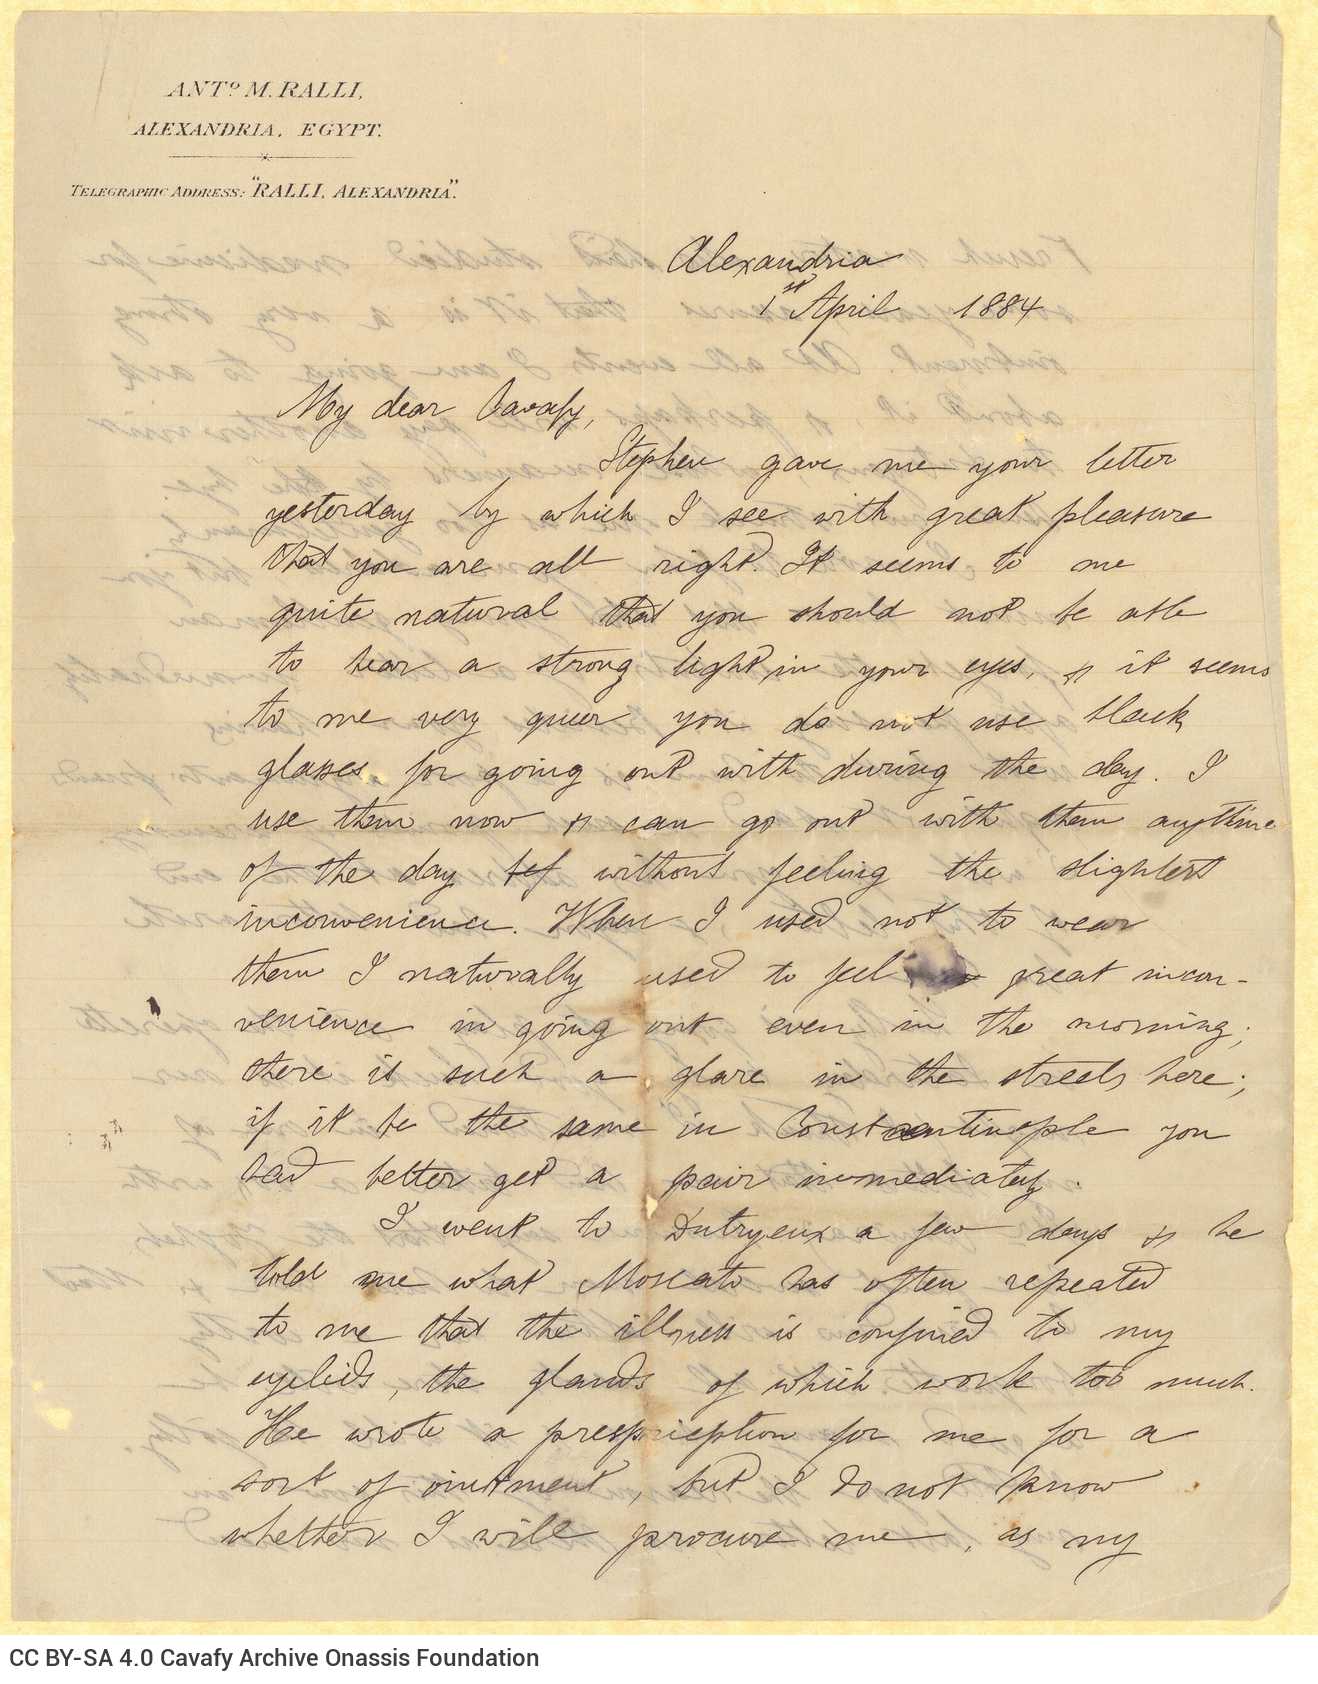 ANTº. M. RALLI,
ALEXANDRIA, EGYPT.
TELEGRAPHIC ADDRESS: "RALLI, ALEXANDRIA".
Alexandria
1st April 1884
My dear Cavafy,
Stephen gave me your letter
yesterday by which I see with great pleasure
that you are all right. It seems to me
quite natural that you should not be able
to bear a strong light in your eyes, & it seems
to me very queer you do not use black
glasses for going out with during the day. I
use them now & can go out with them anytime
of the day without feeling the slightest
inconvenience. When I used not to wear
them I naturally used to feel great incon-
venience in going out even in the morning;
there is such a glare in the streets here;
if it be the same in Constantinople you
had better get a pair immediately.
I went to Dutryeux a few days & he
told me what Moscato has often repeated
to me that the illness is confined to my
eyelids, the glands of which work too much.
He wrote a prespcieption for me for a
sort of ointment, but I do not know
whether I will procure me, as my
CC BY-SA 4.0 Cavafy Archive Onassis Foundation